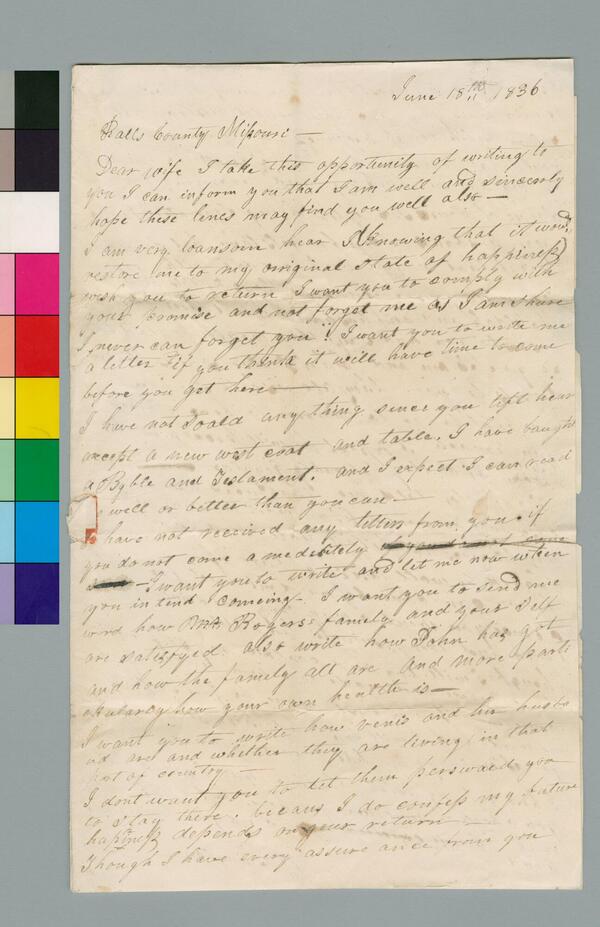 June 18th 1836
Ralls County Missouri —
Dear wife I take this opportunity of writing to
you I can inform you that I am well and sincerely
hope these lines may find you well also —
I am very lonsom hear Knowing that it would
restore me to my original state of happiness
wish you to return I want you to comply with
your promise and not forget me as I am shure
I never can forget you I want you to write me
a letter if you think it will have time to come
before you get here —
I have not soald any thing since you left hear
except a new west coat and table. I have baught
a Byble and Testament. and I expect I can read
as well or better than you can —
I have not received any letters from you if
you do not come amediately
— I want you to write and let me now when
you intend comeing — I want you to send me
word how Rogers family and your self
are satisfyed also write how John has got
and how the family all are and more parti
cularly how your own health is —
I want you to write how venis and her husba
nd are and whether they are living in that
part of country —
I dont want you to let them perswaed you
to stay there. becaus I do confess my future
happiness depends on your return —
Though I have every assureance from you